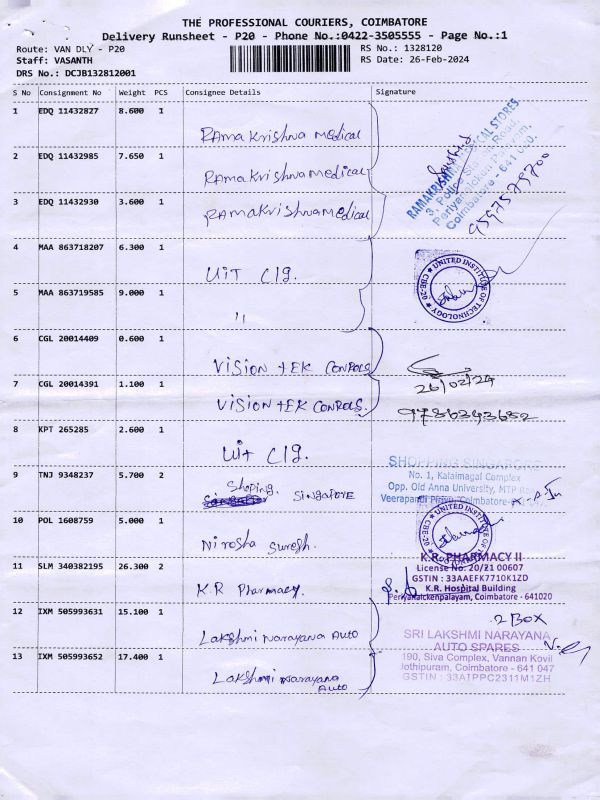 THE PROFESSIONAL COURIERS, COIMBATORE
Delivery Runsheet - P20 - Phone No.:0422-3505555 - Page No.:1
Route: VAN DLY - P20
RS No.: 1328120
Staff: VASANTH
RS Date: 26-Feb-2024
DRS No.: DCJB132812001
S No Consignment No Weight PCS Consignee Details Signature
1 EDQ 11432827 8.600 1
RamaKrishna medical
2 EDQ 11432985 7.650 1
RamaKrishna medical
3 EDQ 11432930 3.600 1
RamaKrishna medical
RAMAKRISHNA MEDICAL STORES
Coimbatore - 641 020.
9597579700
4 MAA 863718207 6.300 1
UiT Clg.
UNITED INSTITUTE OF TECHNOLOGY
CBE-20
5 MAA 863719585 9.000 1
"
6 CGL 20014409 0.600 1
VISION TEK CONROLS
26/02/24
7 CGL 20014391 1.100 1
VISION TEK CONROLS.
9786343682
8 KPT 265285 2.600 1
Uit Clg.
SHOPPING SINGAPORE
No.1, Kalaimagal Complex
Opp. Old Anna University, MTP Road
9 TNJ 9348237 5.700 2
Shoping.
SINGAPORE
10 POL 1608759 5.000 1
Nirosha Suresh.
UNITED INSTITUTE OF TECHNOLOGY
CBE-20
11 SLM 340382195 26.300 2
K.R Pharmacy.
K.R. PHARMACY II
License No. 20/21 00607
GSTIN : 33AAEFK7710K1ZD
K.R. Hospital Building
Periyanaickenpalayam, Coimbatore - 641020
12 IXM 505993631 15.100 1
Lakshmi Narayana Auto
2 BOX
SRI LAKSHMI NARAYANA
AUTO SPARES
190, Siva Complex, Vannan Kovil
Jothipuram, Coimbatore - 641 047
GSTIN : 33ATPPC2311M1ZH
13 IXM 505993652 17.400 1
Lakshmi Narayana
Auto